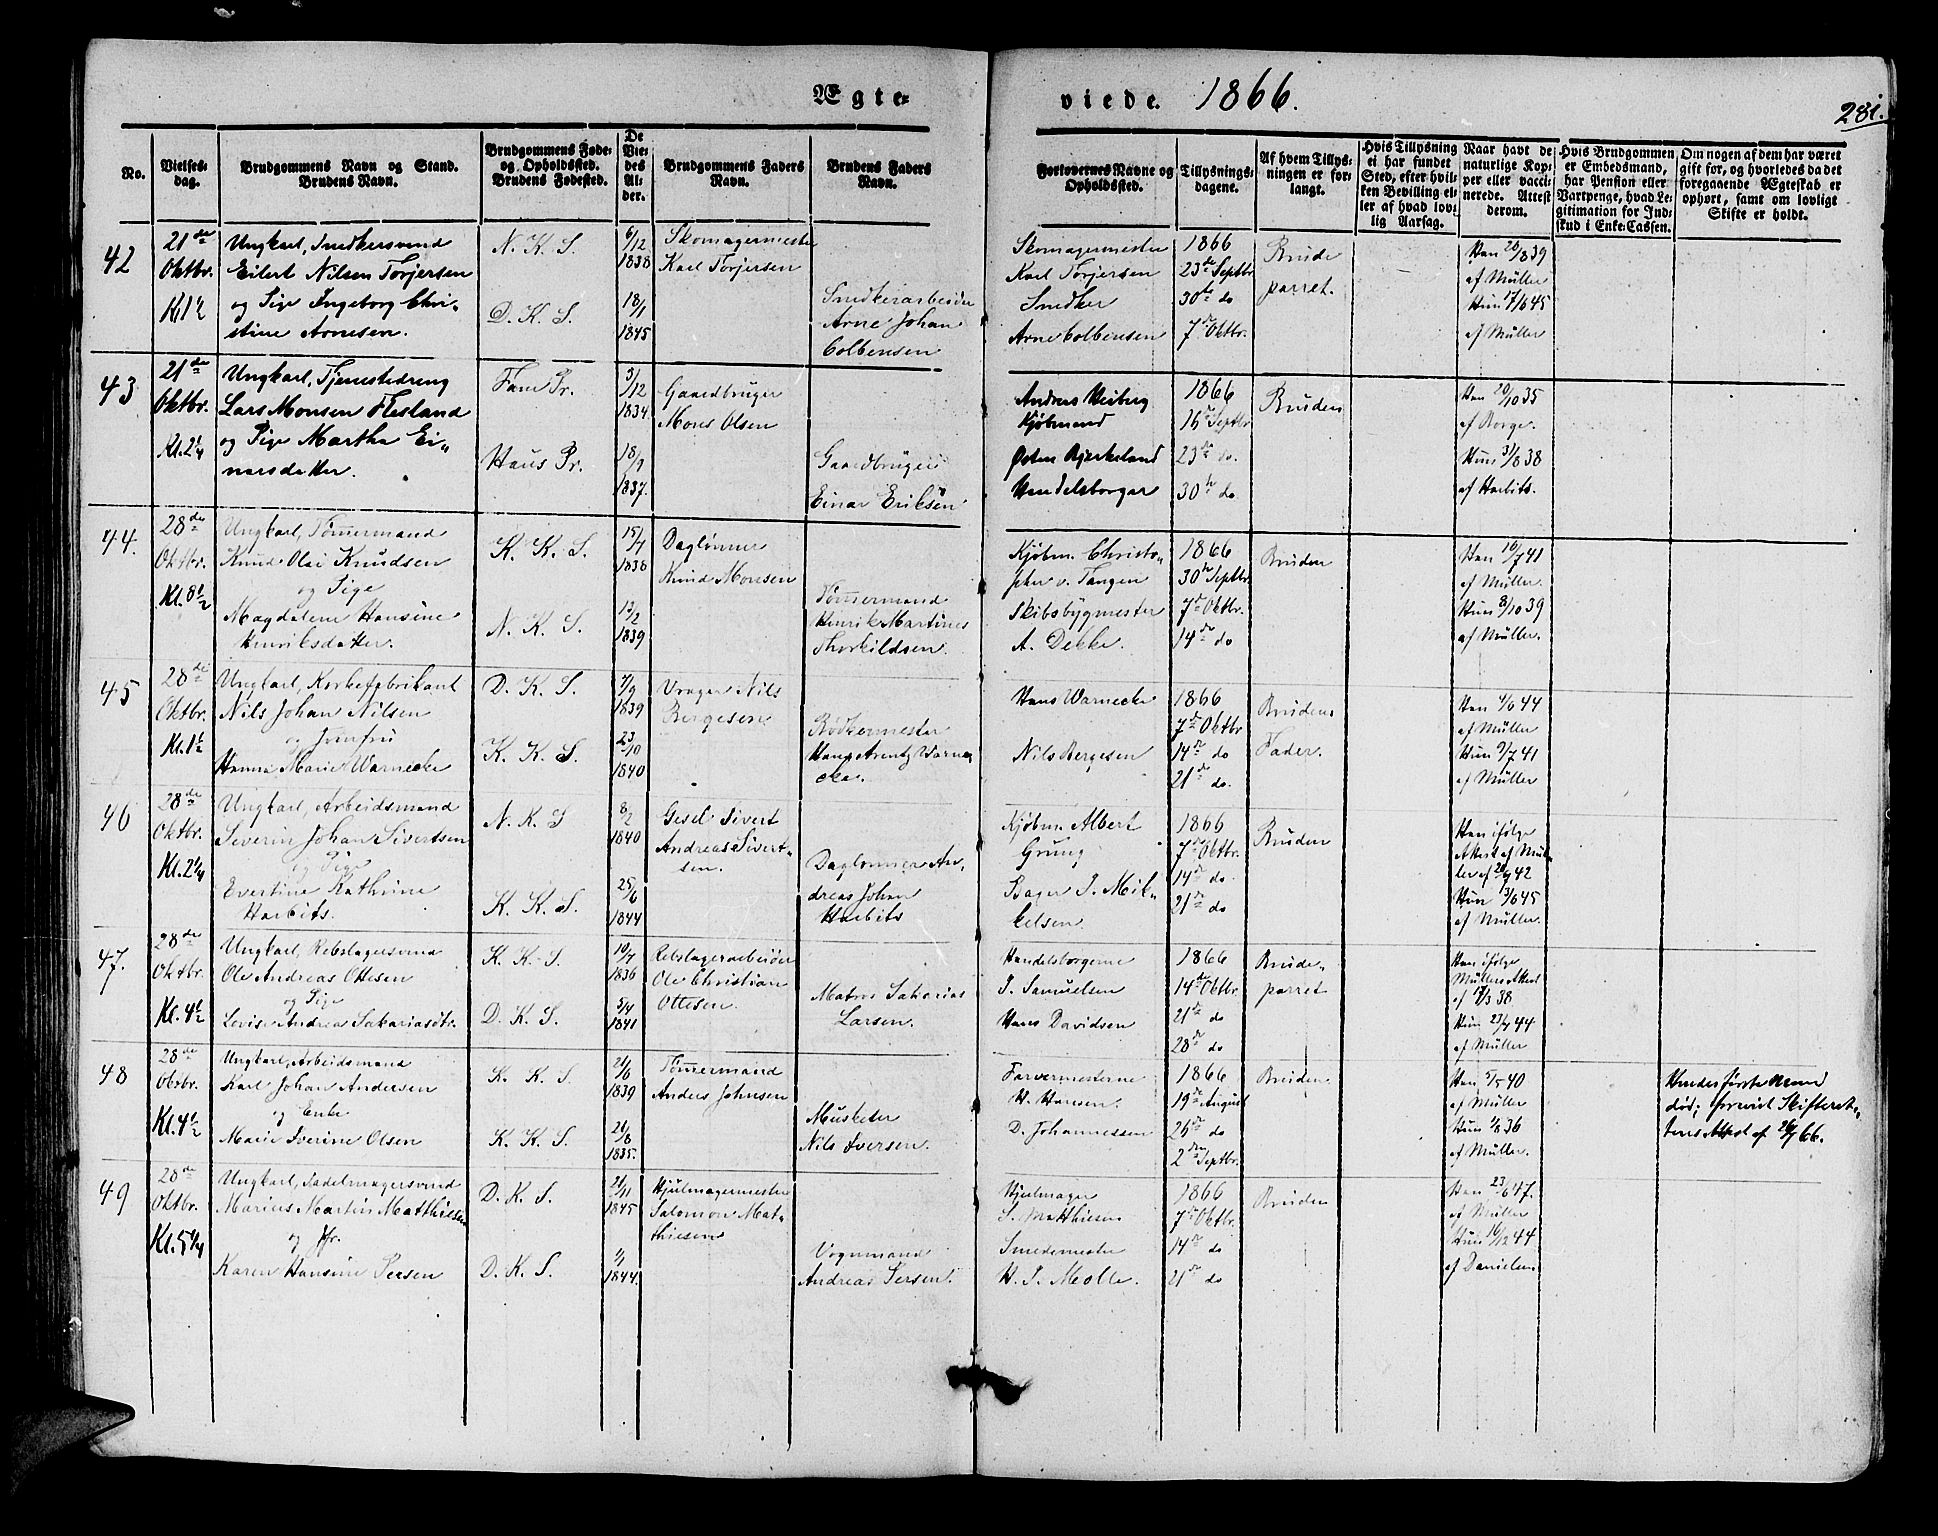 Ægte-
viede. 1866.
281.
No.
Vielses-
dag.
Brudgommens Navn og Stand.
Brudens Navn.
Brudgommens Føde-
og Opholdssted.
Brudens Fødested.
De
Vie-
des
Al-
der.
Brudgommens Faders
Navn.
Brudens Faders
Navn.
Forlovernes Navne og
Opholdssted.
Tillysnings-
dagene.
Af hvem Tillys-
ningen er for-
langt.
Hvis Tillysning
ei har fundet
Sted, efter hvil-
ken Bevilling el-
ler af hvad lov-
lig Aarsag.
Naar havt de
naturlige Kop-
per eller vacci-
nerede. Attest
derom.
Hvis Brudgommen
er Embedsmand,
har Pension eller
Vartpenge, hvad Le-
gitimation for Ind-
skud i Enke-Cassen.
Om nogen af dem har været
gift før, og hvorledes da det
foregaaende Ægteskab er
ophørt, samt om lovligt
Skifte er holdt.
42
21de
Oktbr.
Kl 1½
Ungkarl, Snedkersvend
Eilert Nilsen Torjersen
og Pige Ingeborg Chri-
stine Arnesen.
N. K. S.
D. K. S.
6/12
1838
18/1
1845
Skomagermester
Karl Torjersen
Snedkerarbeider
Arne Johan
Colbensen
Skomagermester
Karl Torjersen
Snedker
Arne Colbensen
1866
23de Septbr.
30te do
7de Oktbr.
Brude
parret.
Han 20/8 39
af Müller
Hun 17/6 45
af Müller
43
21de
Oktbr.
Kl. 2¼
Ungkarl, Tjenestedreng
Lars Monsen Flesland
og Pige Martha Ei-
narsdatter.
Fane Pr.
Haus Pr.
3/12
1834.
18/1
1837.
Gaardbruger
Mons Olsen
Gaardbruger
Einar Eriksen
Andreas Wiberg
Kjøbmand
Østen Bjerkeland
Handelsborger
1866
16de Septbr
23de do.
30te do
Bruden
Han 20/10 35
af Borge.
Hun 31/8 38
af Harbits.
44.
28de
Oktbr.
Kl. 8½
Ungkarl, Tømermand
Knud Olai Knudsen
og Pige
Magdalene Hansine
Henriksdatter.
K. K. S.
N. K. S.
15/4
1838
12/2
1839
Daglønner
Knud Monsen
Tømermand
Henrik Martines
Thorkildsen.
Kjøbm. Christo-
pher v. Tangen
Skibsbygmester
A. Dekke.
1866
30te Septbr.
7de Oktbr.
14de do
Bruden
Han 16/7 41
af Müller.
Hun 8/10 39
af Müller.
45
28de
Oktbr.
Kl. 1½
Ungkarl, Korkefabrikant
Nils Johan Nilsen
og Jomfru
Hanna Marie Warnecke
D. K. S.
K. K. S
7/9
1839
23/10
1840
Vrager Nils
Bergesen
Bødkermester
Hans Arentz Warne-
cke.
Hans Warnecke
Nils Bergesen
1866
7de Oktbr
14de do
21de do.
Brudens
Fader.
Han 4/6 44
af Müller
Hun 9/7 41
af Müller
46
28de
Oktbr.
Kl. 2¼
Ungkarl, Arbeidsmand
Severin Johan Sivertsen
og Pige
Evertine Kathrine
Harbits.
N. K. S
K. K. S.
8/2
1840
25/6
1844
Gesel Sivert
Andreas Sivert-
sen.
Daglønner An-
dreas Johan
Harbits
Kjøbm. Albert
Grung
Bager J. Mik-
kelsen
1866
7de Oktbr.
14de do.
21de do
Bruden
Han ifølge
Attest af Mül-
ler af 20/7 42
Hun 3/6 45
af Müller.
47.
28de
Oktbr.
Kl. 4½
Ungkarl, Rebslagersvend
Ole Andreas Ottesen
og Pige
Lovise Andrea Sakariasdtr.
K. K. S.
D. K. S.
10/7
1836
5/4
1841
Rebslagerarbeider
Ole Christian
Ottesen.
Matros Sakarias
Larsen.
Handelsborgerne
J. Samuelsen
Hans Davidsen
1866
14de Oktbr.
21de do
28de do
Brude-
parret
Han ifølge
Müllers Attest
af 17/3 38
Hun 23/7 44
af Müller
48
28de
Obtbr.
Kl. 4½
Ungkarl, Arbeidsmand
Karl Johan Andersen
og Enke
Marie Iverine Olsen
K. K. S.
K. K. S.
21/6
1839
21/8
1835.
Tømermand
Anders Johnsen
Musketer
Nils Iversen.
Farvermesterne
H. Hansen.
D. Johannessen
1866
19de August
26de do
2den Septbr.
Bruden.
Han 5/5 40
af Müller
Hun 1/8 36
af Müller.
Hendes første Mand
død; forevist Skifteret-
tens Attest af 26/7 66.
49
28de
Oktbr.
Kl. 5¼
Ungkarl, Sadelmagersvend
Marius Martin Matthiesen
og Jfr.
Karen Hansine Sersen
D. K. S.
D. K. S.
21/11
1845
1/1
1844.
Hjulmagermester
Salomon Mat-
thiesen
Vognmand
Andreas Sersen.
Hjulmager
S. Matthiesen
Smedemester
H. J. Molle.
1866
7de Oktbr.
14de do
21de do
Bruden
Han 23/6 47.
af Müller
Hun 16/12 44
af Danielsen